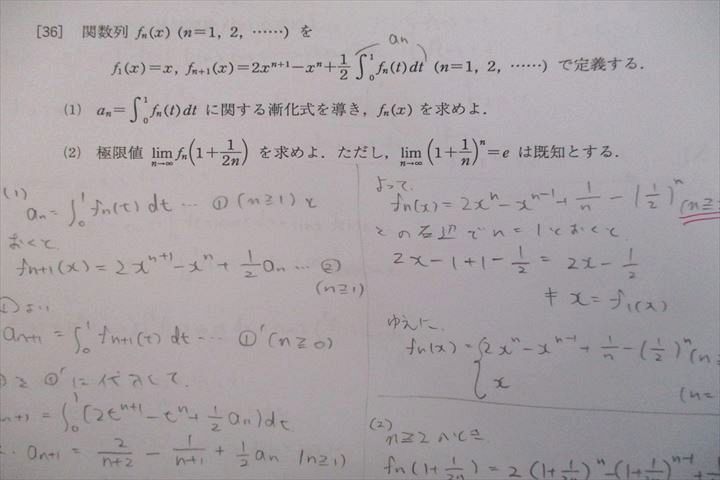 [36] 関数列 fₙ(x) (n=1, 2, ……) を
aₙ
f₁(x)=x, fₙ₊₁(x)=2xⁿ⁺¹−xⁿ+1/2∫₀¹fₙ(t)dt (n=1, 2, ……) で定義する.
(1) aₙ=∫₀¹fₙ(t)dt に関する漸化式を導き, fₙ(x) を求めよ.
(2) 極限値 lim_{n→∞} fₙ(1+1/2n) を求めよ. ただし, lim_{n→∞}(1+1/n)ⁿ=e は既知とする.
(1)
aₙ=∫₀¹fₙ(t)dt … ① (n≧1) と
おくと
fₙ₊₁(x)=2xⁿ⁺¹−xⁿ+1/2 aₙ … ②
(n≧1)
①より
aₙ₊₁=∫₀¹fₙ₊₁(t)dt … ①' (n≧0)
を ①' に代入して.
=∫₀¹(2tⁿ⁺¹−tⁿ+1/2 aₙ)dt
aₙ₊₁=2/(n+2)−1/(n+1)+1/2 aₙ (n≧1)
よって
fₙ(x)=2xⁿ−xⁿ⁻¹+1/n−(1/2)ⁿ (n≧
この右辺で n=1とおくと
2x−1+1−1/2=2x−1/2
≠x=f₁(x)
ゆえに
fₙ(x)={2xⁿ−xⁿ⁻¹+1/n−(1/2)ⁿ (n≧
x (n=
(2)
n≧2 のとき
fₙ(1+1/2n)=2(1+1/2n)ⁿ−(1+1/2n)ⁿ⁻¹+